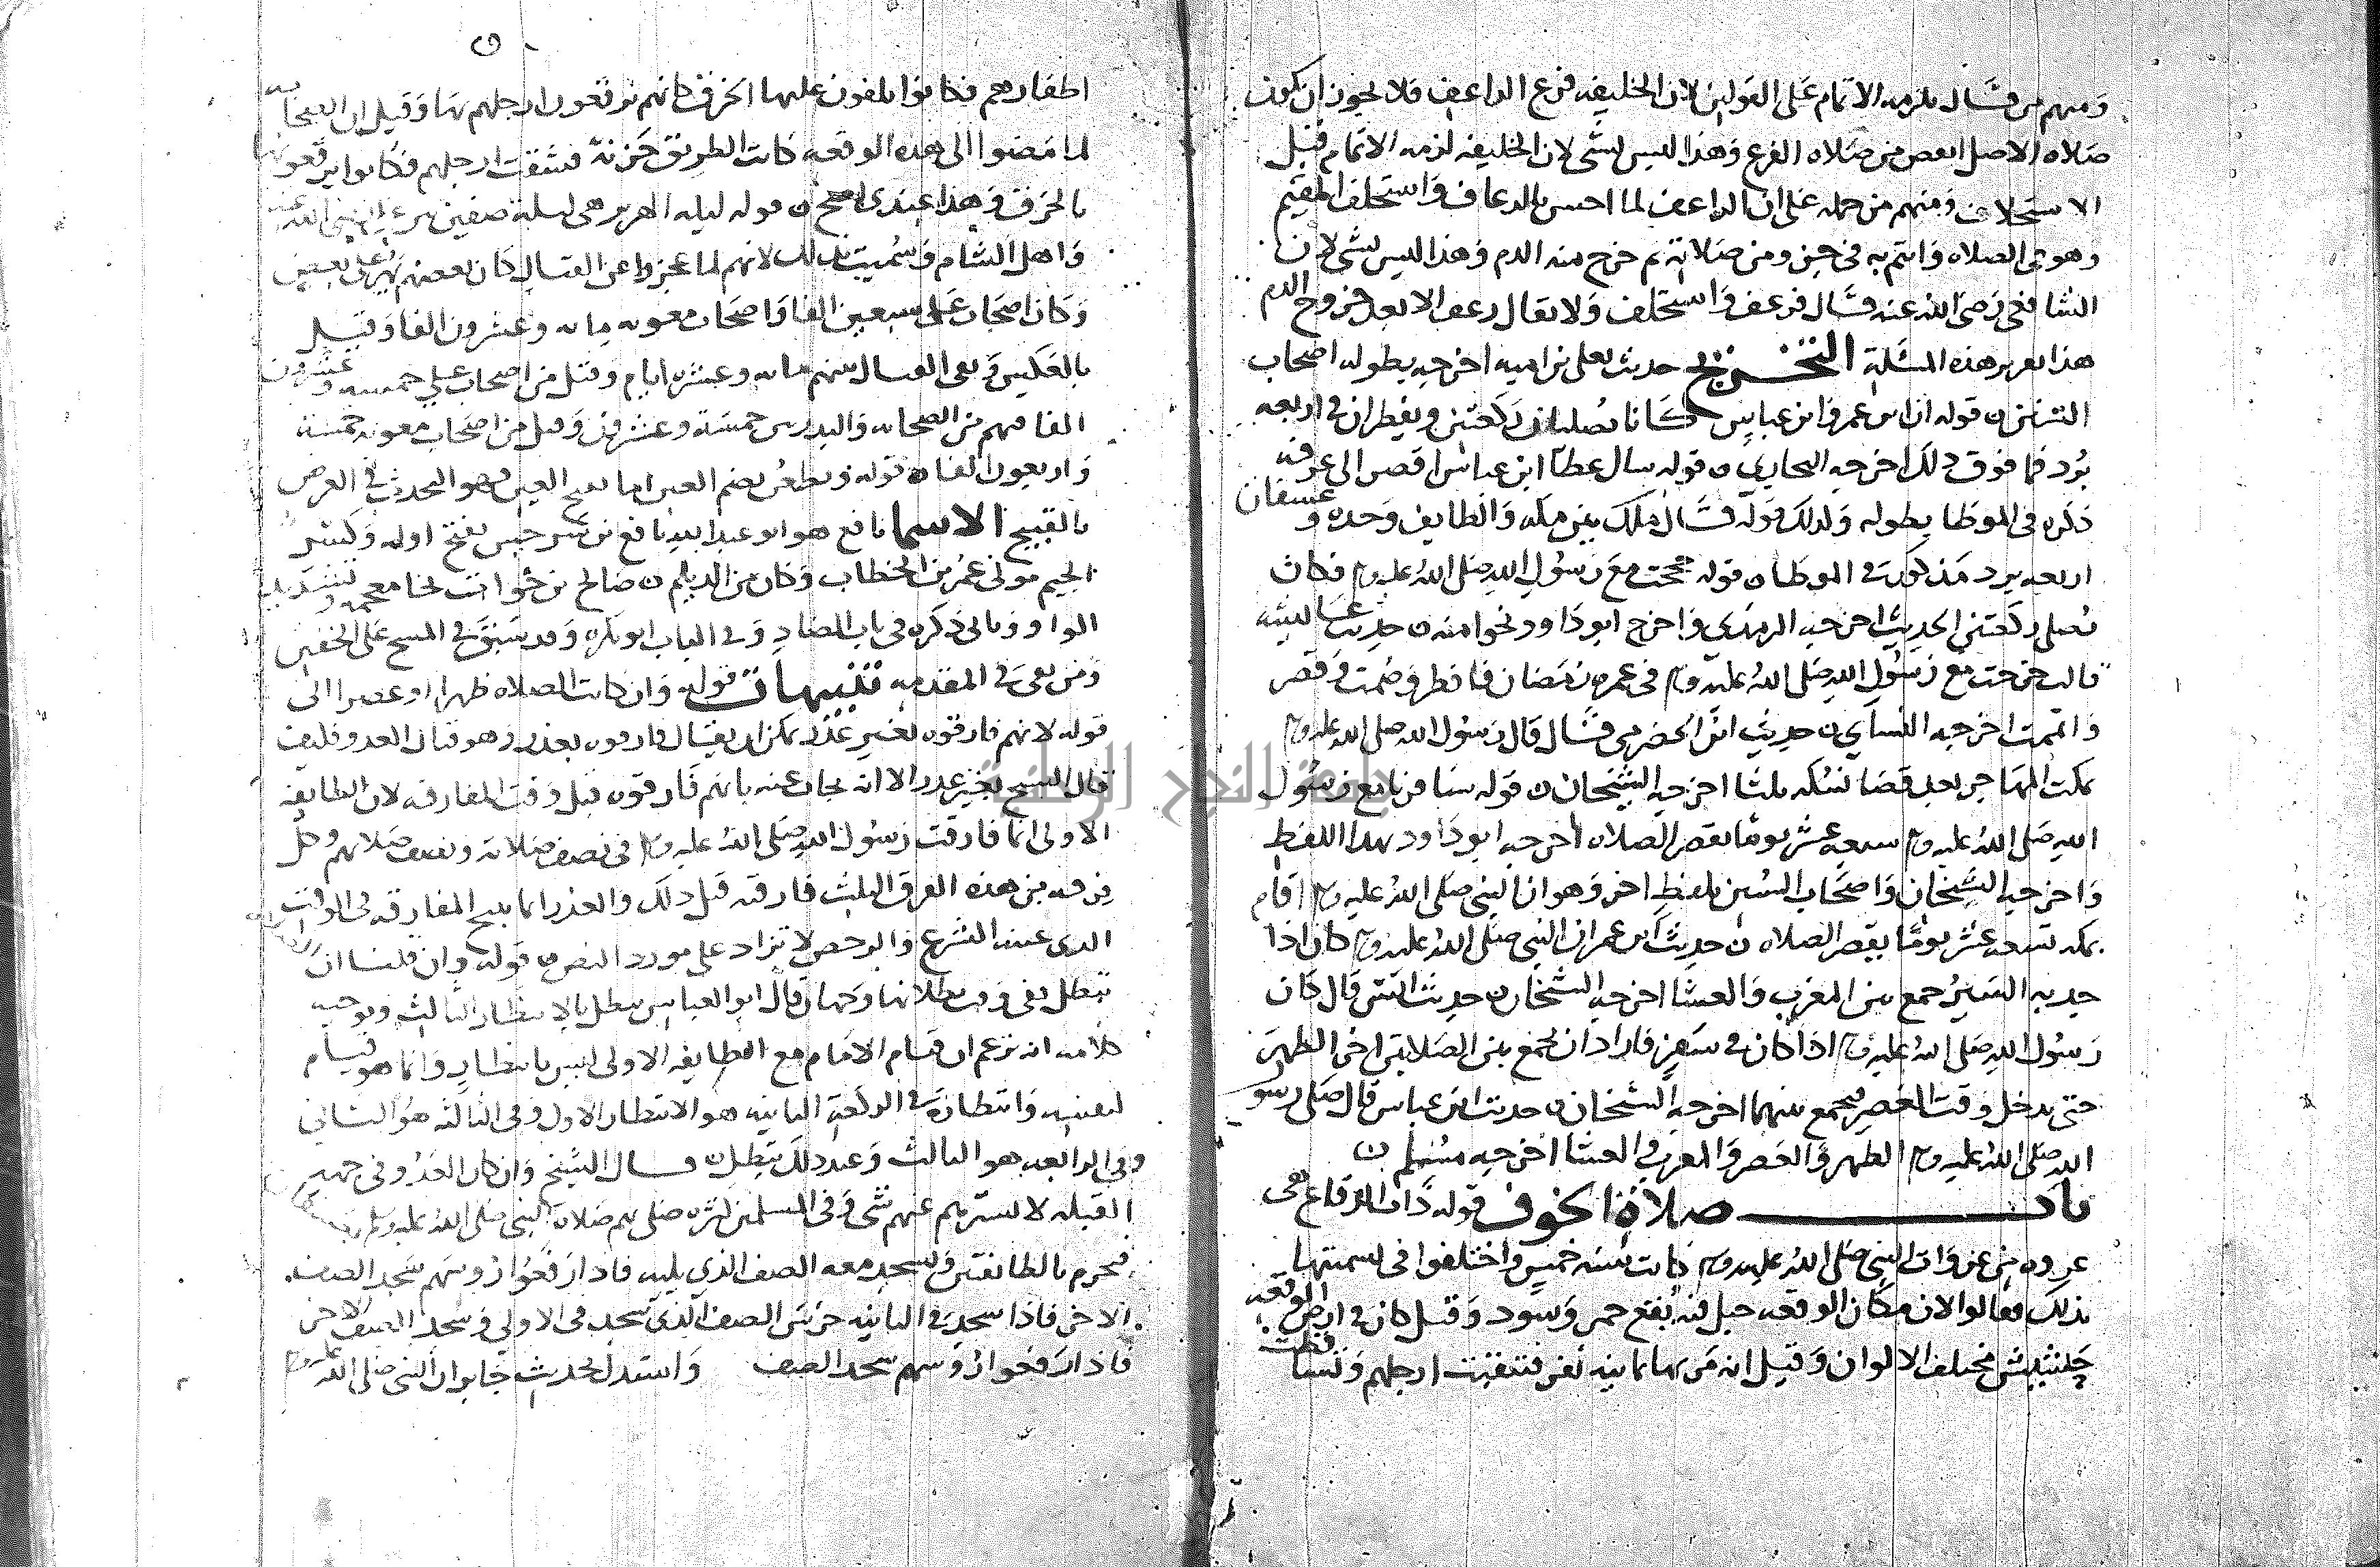 ومنهم من قال يلزمه الاتمام على القولين لان الخليفه فرع الراعف فلا يجوز ان يكون
صلاه الاصل انقص من صلاه الفرع وهذا ليس بشي لان الخليفه لزمه الاتمام قبل
الاستخلاف ومنهم من حمله على ان الراعف لما احس بالرعاف واستخلف المقيم
وهو في الصلاه وائتم به في جزء من صلاته ثم خرج منه الدم وهذا ليس بشي لان
الشافعي رضي الله عنه قال فرعف واستخلف ولا يقال رعف الا بعد خروج الدم
هذا تقرير هذه المسئلة التخريج حديث يعلى بن اميه اخرجه بطوله اصحاب
السنن ن قوله ان ابن عمر وابن عباس كانا يصليان ركعتين ويفطران في اربعه
برد فما فوق ذلك اخرجه البخاري ن قوله سال عطا ابن عباس اقصر الى عرفه
ذكره في الموطا بطوله وكذلك قوله قال ملك بين مكه والطايف وجده و عسفان
اربعه برد مذكور في الموطا ن قوله حججت مع رسول الله صلى الله عليه وسلم فكان
يصلي ركعتين الحديث اخرجه الترمذي واخرج ابو داوود نحوا منه ن حديث عايشه
قالت خرجت مع رسول الله صلى الله عليه وسلم في عمره رمضان فافطر وصمت وقصر
واتممت اخرجه النسايي ن حديث ابن الحضرمي قال قال رسول الله صلى الله عليه وسلم
يمكث المهاجر بعد قضا نسكه ثلثا اخرجه الشيخان ن قوله سافرنا مع رسول
الله صلى الله عليه وسلم سبعه عشر يوما يقصر الصلاه اخرجه ابو داود بهذا اللفظ
واخرجه الشيخان واصحاب السنن بلفظ اخر وهو ان النبي صلى الله عليه وسلم اقام
بمكه تسعه عشر يوما يقصر الصلاه ن حديث ابن عمر ان النبي صلى الله عليه وسلم كان اذا
جد به السير جمع بين المغرب والعشا اخرجه الشيخان حديث انس قال كان
رسول الله صلى الله عليه وسلم اذا كان في سفر فاراد ان يجمع بين الصلاتين اخر الظهر
حتى يدخل وقت العصر فيجمع بينهما اخرجه الشيخان ن حديث ابن عباس قال صلى رسو
الله صلى الله عليه وسلم الظهر والعصر والمغرب والعشا اخرجه مسلم ن
باب صلاة الخوف قوله ذات الرقاع هي
غزوه من غزوات النبي صلى الله عليه وسلم كانت سنه خمس واختلفوا في تسميتها
بذلك فقالوا لان مكان الوقعه جبل فيه بقع حمر وسود وقيل كان في ارض الوقعه
مختلف الالوان وقيل انه مر بها ثمانيه نفر فتنقبت ارجلهم وتساقطت
اظفارهم فكانوا يلفون عليها الخرق فكانهم يرقعون ارجلهم بها وقيل ان الصحابه
لما مضوا الى هذه الوقعه كانت الطريق حزنة فشققت ارجلهم فكانوا يرقعونها
بالخرق وهذا عندي اصح ن قوله ليله الهرير هي ليلة صفين بين علي رضي الله عنه
واهل الشام وسميت بذلك لانهم لما عجزوا عن القتال كان بعضهم يهر على بعض
وكان اصحاب علي سبعين الفا واصحاب معويه مايه وعشرون الفا وقيل
بالعكس وبقي القتال بينهم مايه وعشره ايام وقتل من اصحاب علي خمسه وعشرون
الفا منهم من الصحابه والبدريين خمسة وعشرون وقتل من اصحاب معويه خمسة
واربعون الفا ن قوله ويطعن بضم العين اما بفتح العين فهو التحدث في العرض
بالقبيح الاسما نافع هو ابو عبد الله نافع بن سرجس بفتح اوله وكسر
الجيم مولى عمر بن الخطاب وكان من الديلم ن صالح بن خوات بخا معجمه وتشديد
الواو وياتي ذكره في باب الضاد وفي الباب ابو بكره وقد سبق في المسح على الخفين
ومن بقي في المقدمه تنبيهات قوله وان كانت الصلاه ظهرا او عصرا الى
قوله لانهم فارقوه بغير عذر يمكن ان يقال فارقوه بعذر وهو قتال العدو فكيف
قال الشيخ بغير عذر الا انه يجاب عنه بانهم فارقوه قبل وقت المفارقه لان الطايفه
الاولى انما فارقت رسول الله صلى الله عليه وسلم في نصف صلاته ونصف صلاتهم وكل
فرقه من هذه الفرق الثلث فارقته قبل ذلك والعذر انما يبيح المفارقه في الوقت
الذي عينه الشرع والرخص لا تزاد على مورد النص ن قوله وان قلنا ان
تبطل ففي وقت بطلانها وجهان قال ابو العباس تبطل بالانتظار الثالث وتوجيه
كلامه انه يزعم ان قيام الامام مع الطايفه الاولى ليس بانتظار وانما هو قيام
لنفسه وانتظاره في الركعه الثانيه هو الانتظار الاول وفي الثالثه هو الثاني
وفي الرابعه هو الثالث وعند ذلك تبطل ن قال الشيخ وان كان العدو في جهه
القبله لا يسترهم عنهم شي وفي المسلمين كثره صلى بهم صلاة النبي صلى الله عليه وسلم
فيحرم بالطايفتين ويسجد معه الصف الذي يليه فاذا رفعوا ورهم سجد الصف
الاخر فاذا سجد في الثانيه حرس الصف الذي سجد في الاولى وسجد الصف الاخر
فاذا رفعوا سجد الصف واستدل بحديث جابر ان النبي صلى الله عليه وسلم
جامعة النجاح الوطنية